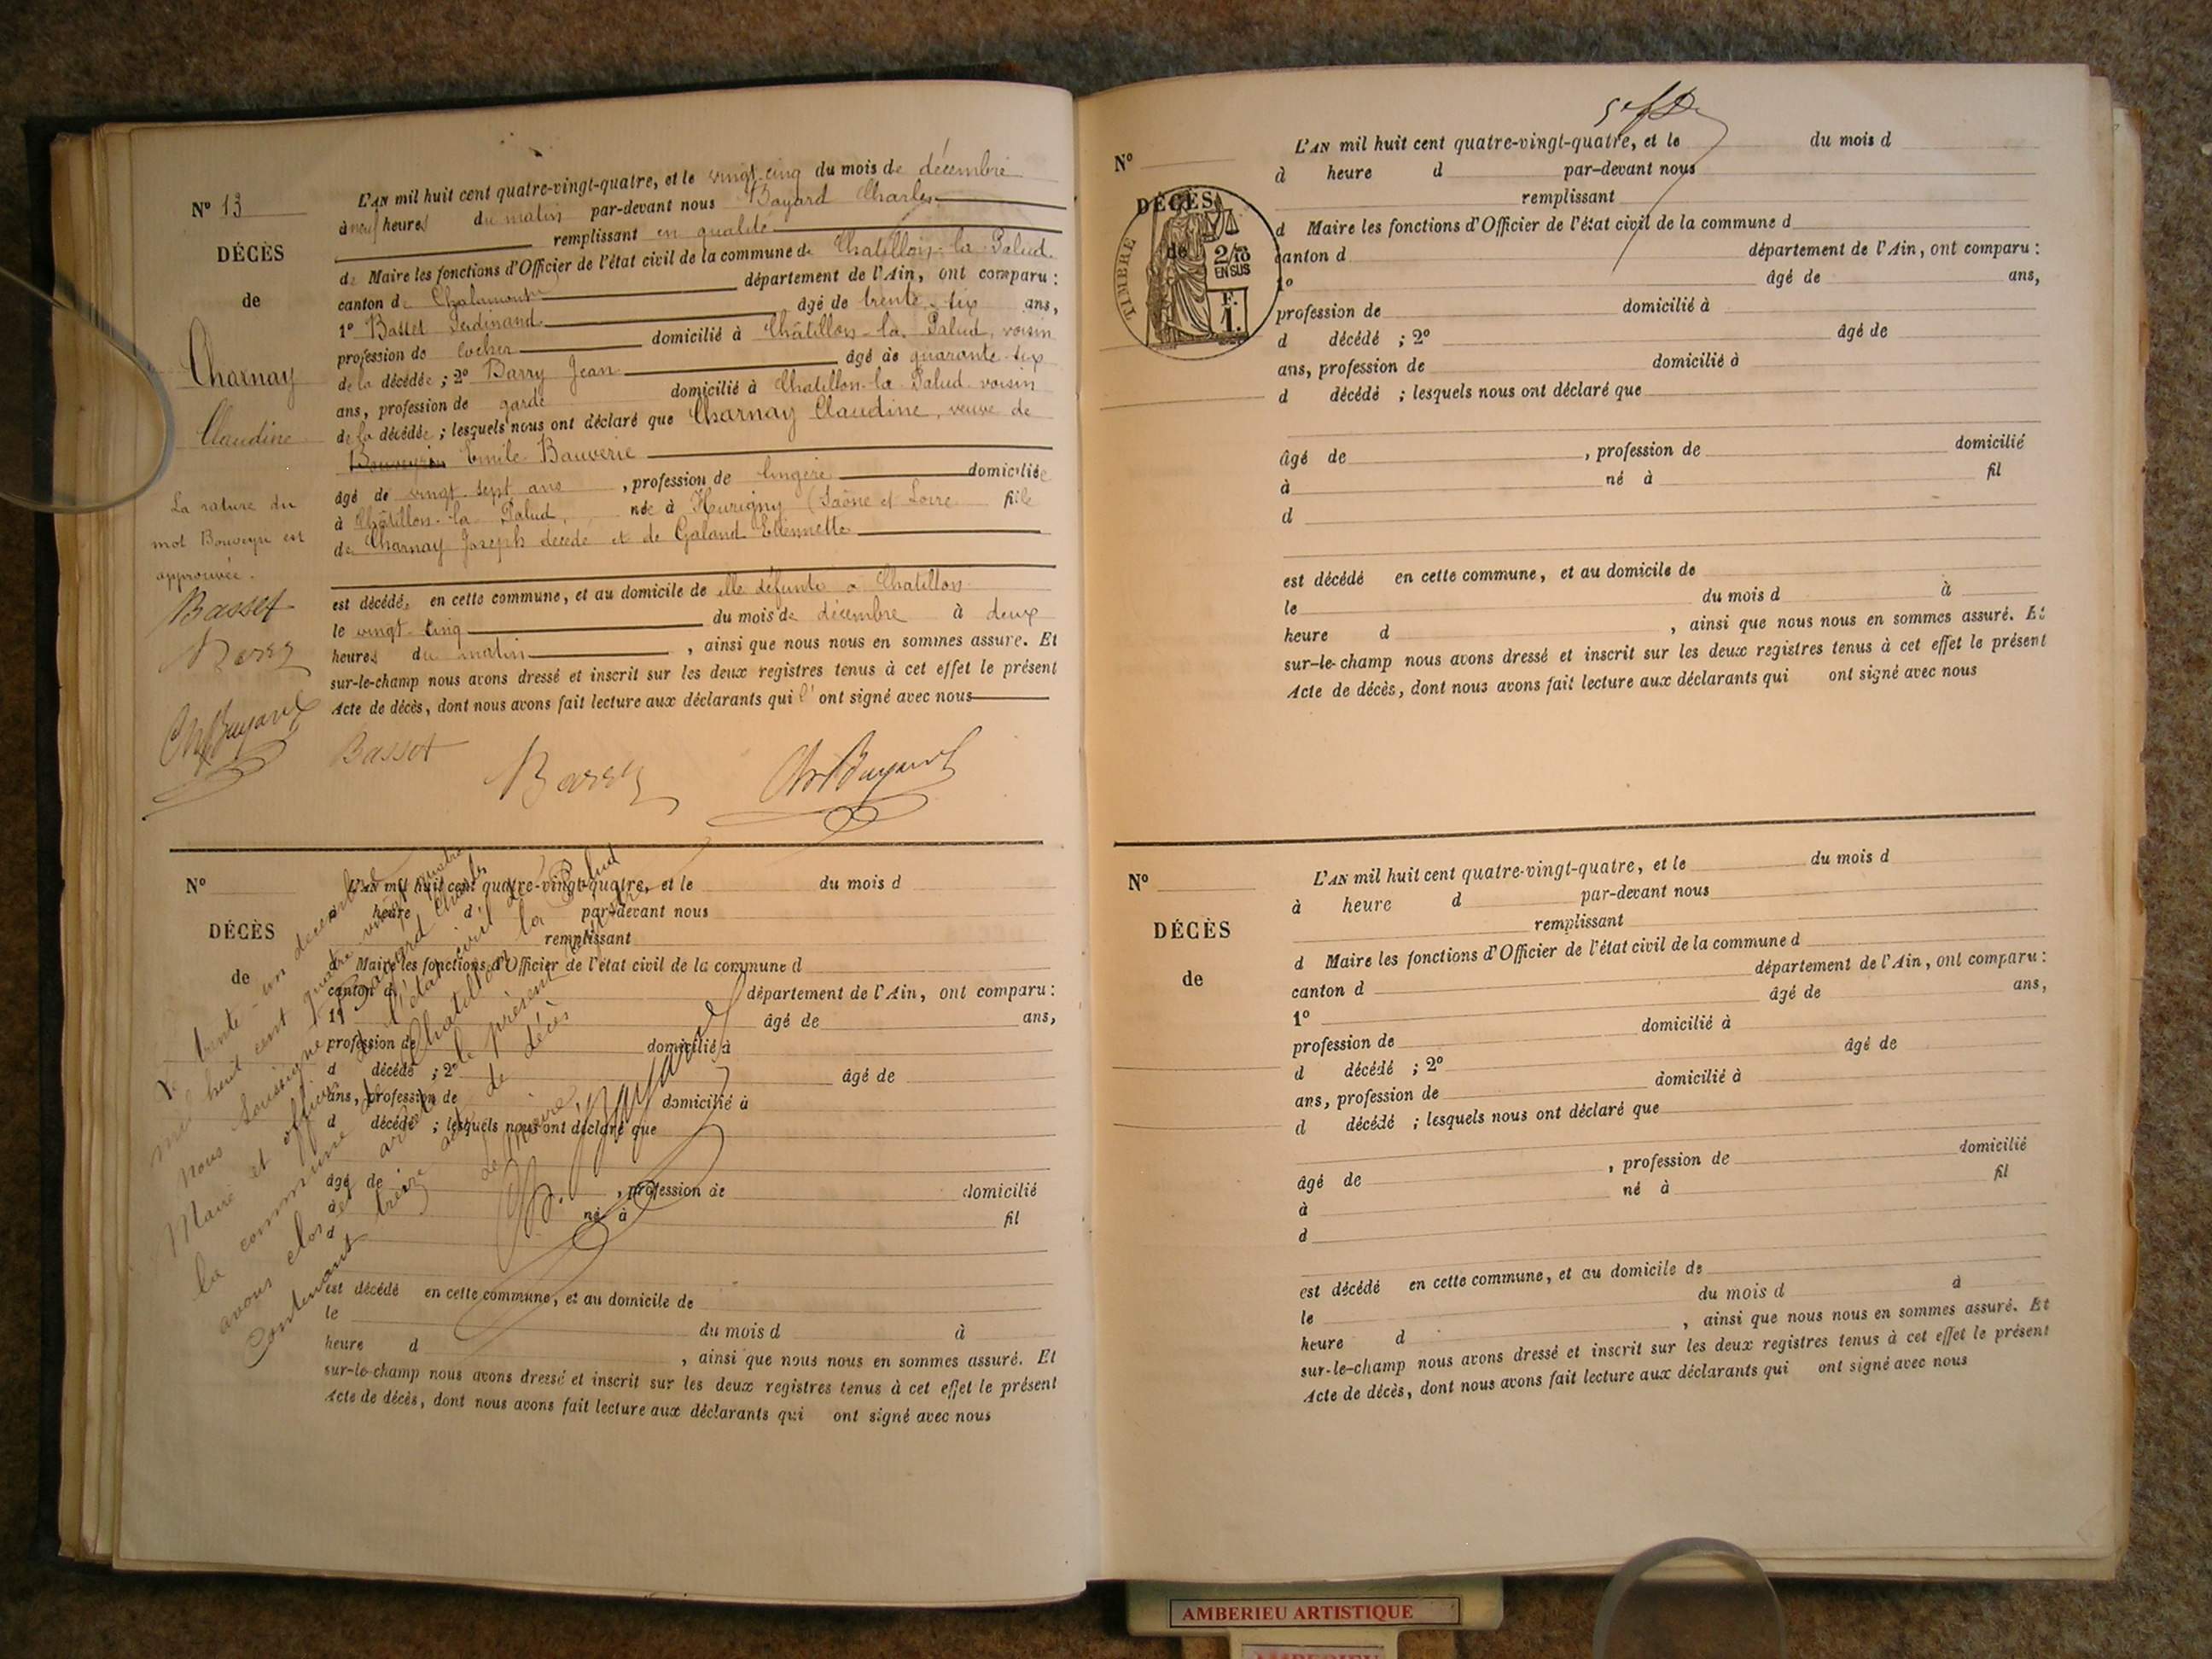 N° 13
DÉCÈS
de
Charnay
Claudine
La rature du
mot Bouveyri est
approuvée.
Basset
Barry
Ch Bayard
L'AN mil huit cent quatre-vingt-quatre, et le vingt cinq du mois de décembre
à neuf heures du matin par-devant nous Bayard Charles
remplissant en qualité
de Maire les fonctions d'Officier de l'état civil de la commune de Chatillon-la-Palud
canton de Chalamont département de l'Ain, ont comparu :
1° Basset Ferdinand âgé de trente-six ans,
profession de cocher domicilié à Châtillon-la-Palud, voisin
de la décédée ; 2° Barry Jean âgé de quarante-six
ans, profession de garde domicilié à Chatillon-la-Palud voisin
de la décédée ; lesquels nous ont déclaré que Charnay Claudine, veuve de
Emile Bauverie
âgé de vingt sept ans , profession de lingère domiciliée
à Châtillon-la-Palud, née à Hurigny (Saône et Loire fille
de Charnay Joseph décédé et de Galand Etiennette
est décédée en cette commune, et au domicile de elle défunte à Chatillon
le vingt-cinq du mois de décembre à deux
heures du matin , ainsi que nous nous en sommes assuré. Et
sur-le-champ nous avons dressé et inscrit sur les deux registres tenus à cet effet le présent
Acte de décès, dont nous avons fait lecture aux déclarants qui l' ont signé avec nous
Basset Barry Ch Bayard
N°
DÉCÈS
de
L'AN mil huit cent quatre-vingt-quatre, et le du mois d
à heure d par-devant nous
remplissant
d Maire les fonctions d'Officier de l'état civil de la commune d
canton d département de l'Ain, ont comparu :
1° âgé de ans,
profession de domicilié à
d décédé ; 2° âgé de
ans, profession de domicilié à
d décédé ; lesquels nous ont déclaré que
âgé de , profession de domicilié
à né à fil
d
est décédé en cette commune, et au domicile de
le du mois d à
heure d , ainsi que nous nous en sommes assuré. Et
sur-le-champ nous avons dressé et inscrit sur les deux registres tenus à cet effet le présent
Acte de décès, dont nous avons fait lecture aux déclarants qui ont signé avec nous
Le trente-un décembre
mil huit cent quatre-vingt quatre
nous soussigné Bayard Charles
Maire et officier de l'état civil de
la commune de Chatillon la Palud
avons clos et arrêté le présent registre
contenant treize actes de décès
Ch. Bayard
N°
DÉCÈS
de
TIMBRE
2/10
EN SUS
F.
1.
L'AN mil huit cent quatre-vingt-quatre, et le du mois d
à heure d par-devant nous
remplissant
d Maire les fonctions d'Officier de l'état civil de la commune d
canton d département de l'Ain, ont comparu :
1° âgé de ans,
profession de domicilié à
d décédé ; 2° âgé de
ans, profession de domicilié à
d décédé ; lesquels nous ont déclaré que
âgé de , profession de domicilié
à né à fil
d
est décédé en cette commune, et au domicile de
le du mois d à
heure d , ainsi que nous nous en sommes assuré. Et
sur-le-champ nous avons dressé et inscrit sur les deux registres tenus à cet effet le présent
Acte de décès, dont nous avons fait lecture aux déclarants qui ont signé avec nous
N°
DÉCÈS
de
L'AN mil huit cent quatre-vingt-quatre, et le du mois d
à heure d par-devant nous
remplissant
d Maire les fonctions d'Officier de l'état civil de la commune d
canton d département de l'Ain, ont comparu :
1° âgé de ans,
profession de domicilié à
d décédé ; 2° âgé de
ans, profession de domicilié à
d décédé ; lesquels nous ont déclaré que
âgé de , profession de domicilié
à né à fil
d
est décédé en cette commune, et au domicile de
le du mois d à
heure d , ainsi que nous nous en sommes assuré. Et
sur-le-champ nous avons dressé et inscrit sur les deux registres tenus à cet effet le présent
Acte de décès, dont nous avons fait lecture aux déclarants qui ont signé avec nous
AMBERIEU ARTISTIQUE
AMBERIEU